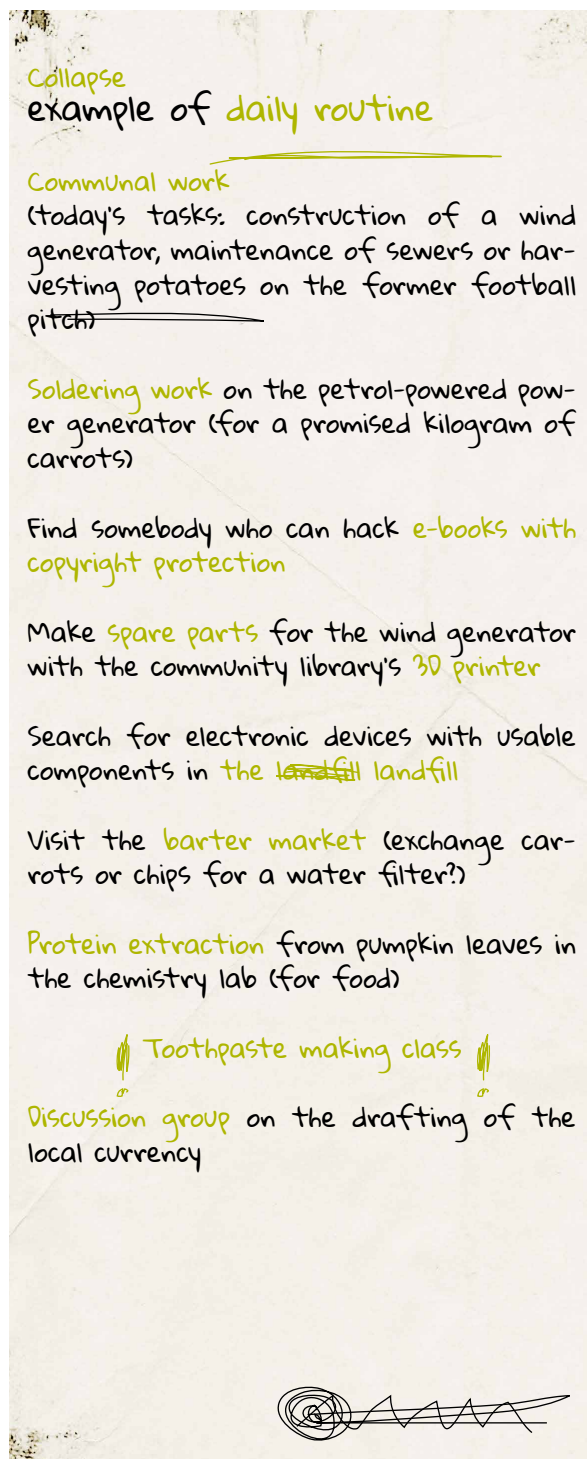 Collapse
example of daily routine
Communal work
(today's tasks: construction of a wind
generator, maintenance of sewers or har-
vesting potatoes on the former football
pitch)
Soldering work on the petrol-powered pow-
er generator (for a promised kilogram of
carrots)
Find somebody who can hack e-books with
copyright protection
Make spare parts for the wind generator
with the community library's 3D printer
Search for electronic devices with usable
components in the landfill landfill
Visit the barter market (exchange car-
rots or chips for a water filter?)
Protein extraction from pumpkin leaves in
the chemistry lab (for food)
! Toothpaste making class !
Discussion group on the drafting of the
local currency